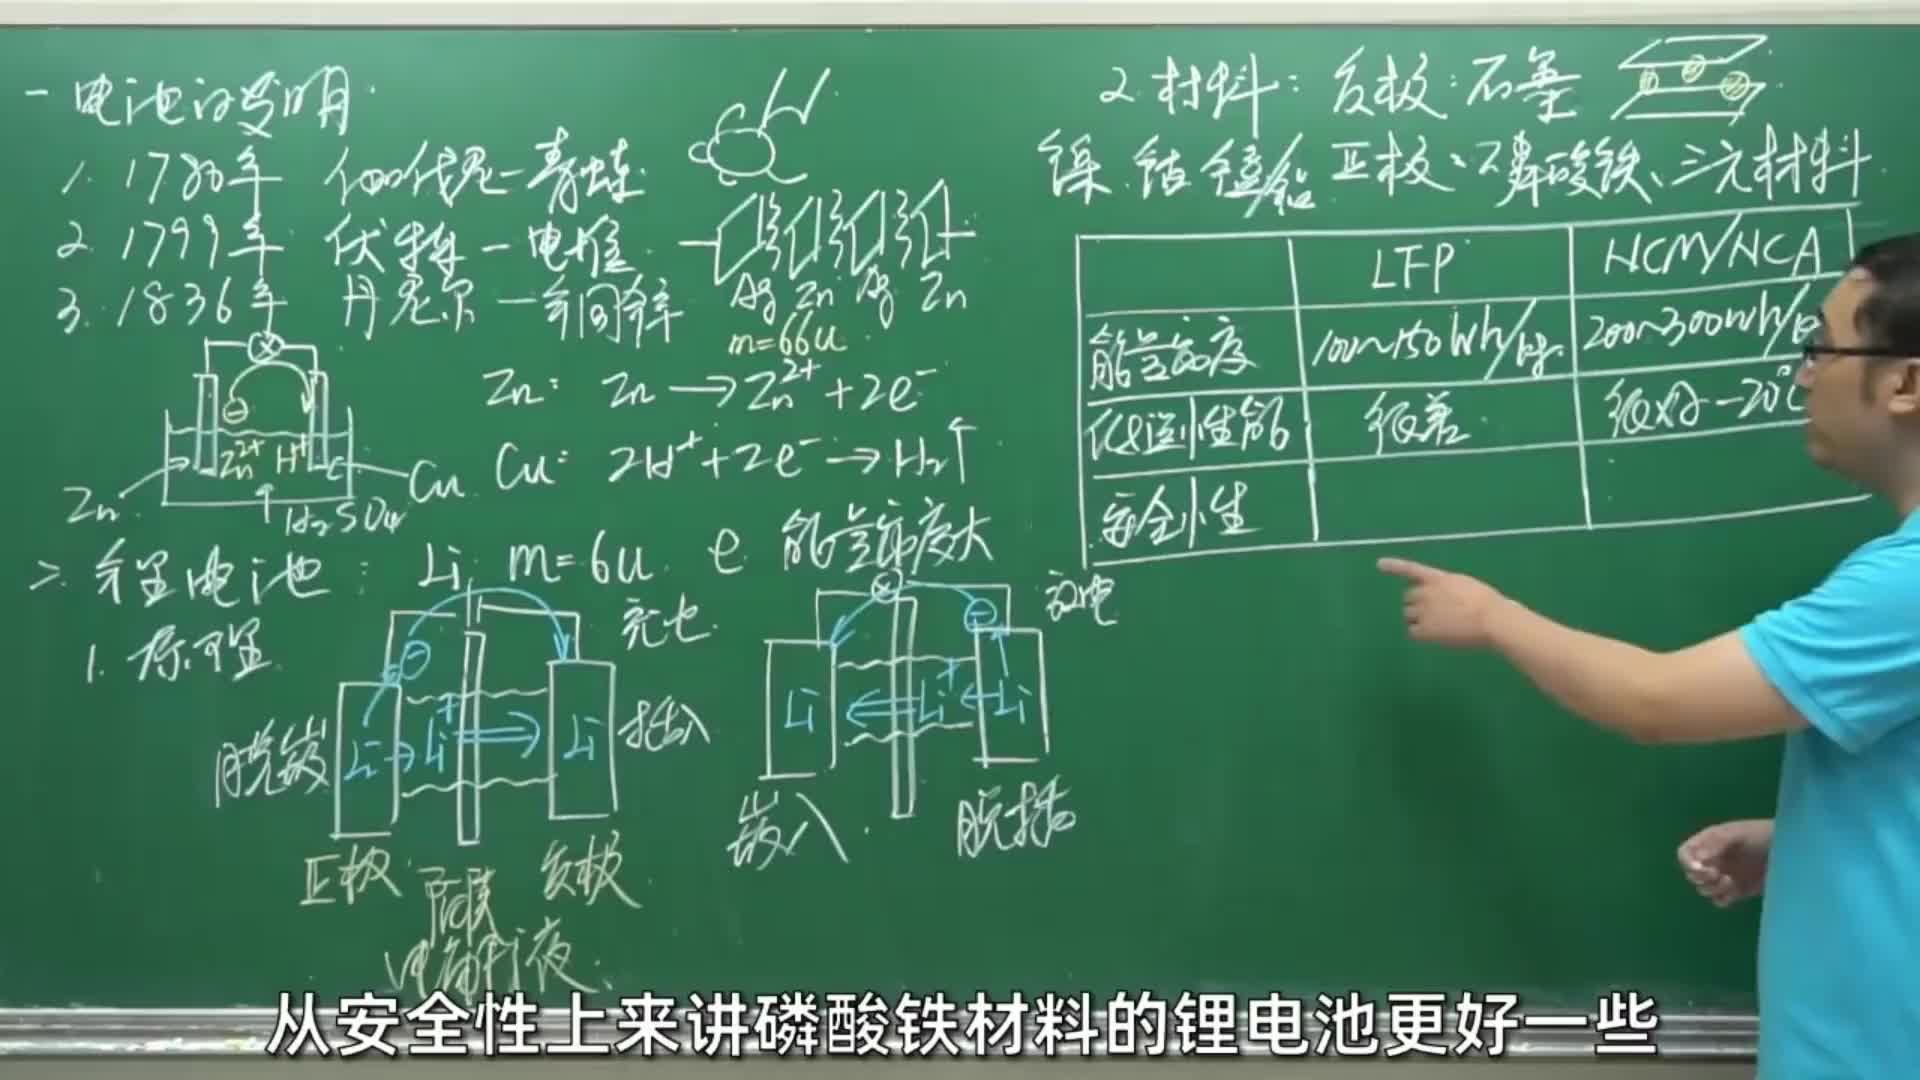 一 电池的发明
1. 1780年 伽伐尼—青蛙
2. 1799年 伏特—电堆
3. 1836年 丹尼尔—铜锌
Ag Zn Ag Zn
m=66u
Zn: Zn → Zn²⁺ + 2e⁻
Cu: 2H⁺ + 2e⁻ → H₂↑
Zn Zn²⁺ H⁺ Cu
H₂SO₄
二. 锂电池: Li m=6u e 能量密度大
1. 原理
充电
脱嵌 Li Li⁺ Li 插入
正极 隔膜 负极
电解液
放电
Li Li⁺ Li
嵌入 脱插
2. 材料: 负极: 石墨
镍 钴 锰/铝 正极: 磷酸铁、三元材料
LFP NCM/NCA
能量密度 100~150Wh/kg 200~300Wh/
低温性能 很差 很好 -20°C
安全性
从安全性上来讲磷酸铁材料的锂电池更好一些